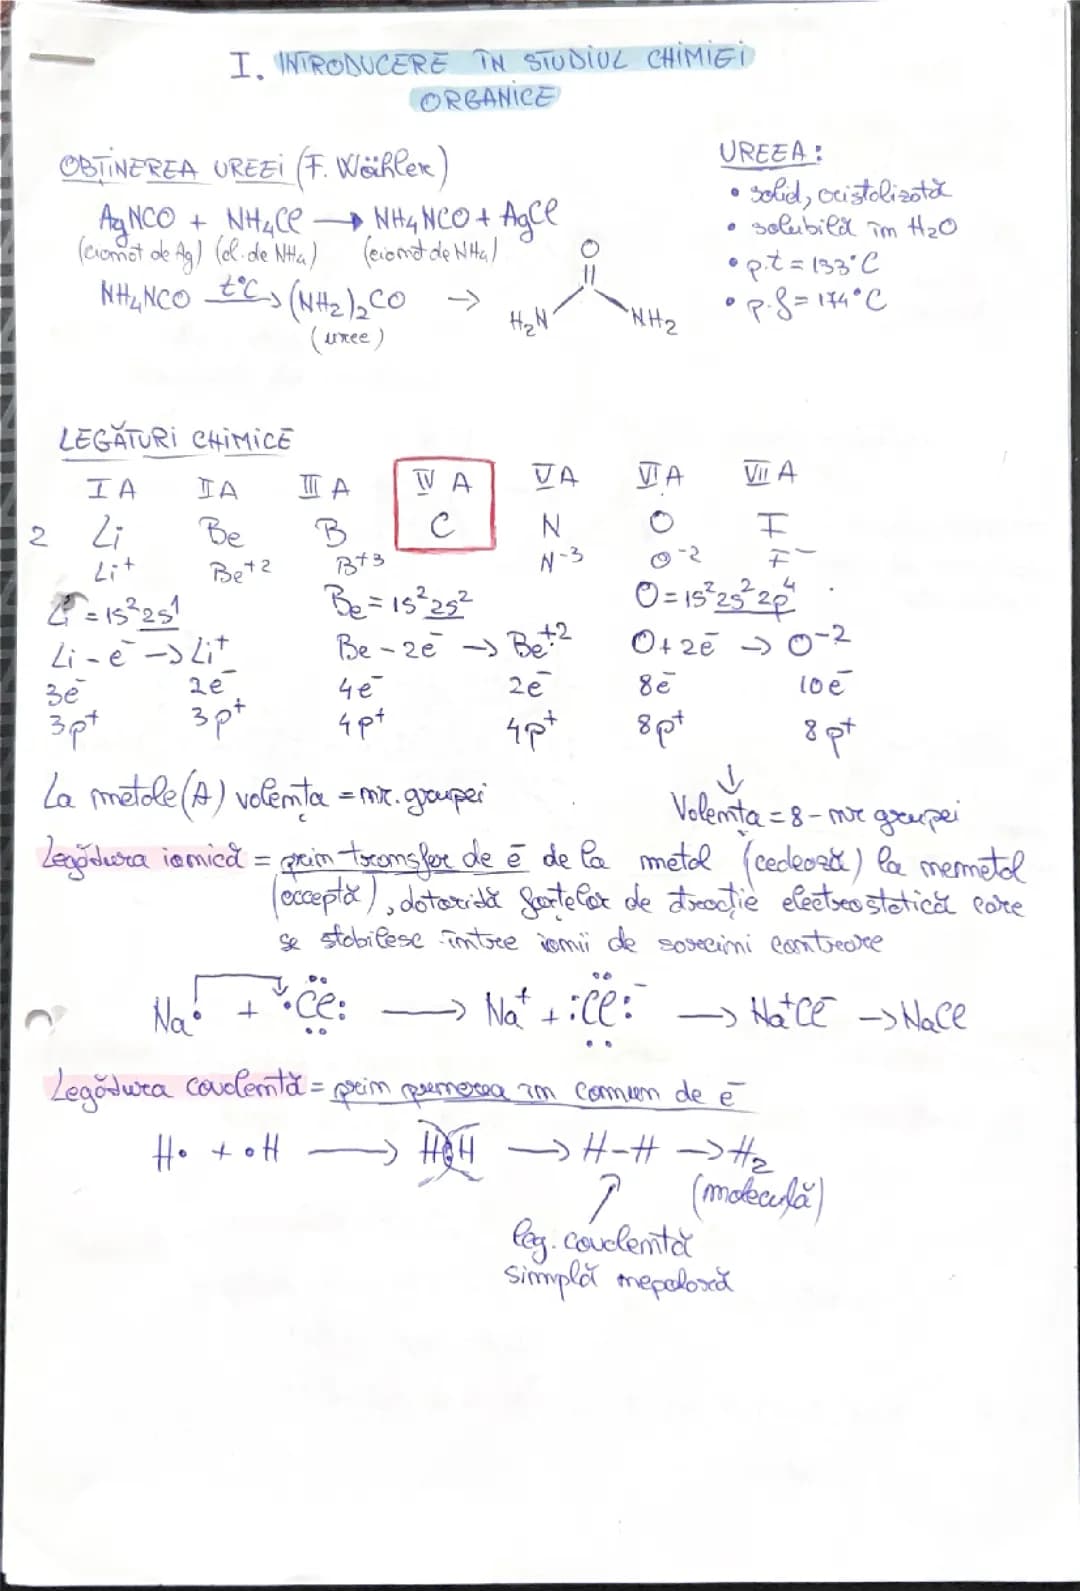 I. INTRODUCERE ÎN STUDIUL CHIMIEI
ORGANICE
OBȚINEREA UREEI (F. Wöhler)
AgNCO + NH₄Cl → NH₄NCO + AgCl
(cianat de Ag) (cl. de NH₄) (cianat de NH₄)
NH₄NCO t°C → (NH₂)₂CO →
(uree)
O
H₂N NH₂
UREEA:
• solid, cristalizată
• solubilă în H₂O
• p.t = 133°C
• p.f = 174°C
LEGĂTURI CHIMICE
I A II A III A IV A V A VI A VII A
2 Li Be B C N O F
Li⁺ Be⁺² B⁺³ N⁻³ O⁻² F⁻
Li = 1s²2s¹ Be = 1s²2s² O = 1s²2s²2p⁴
Li - e⁻ → Li⁺ Be - 2e⁻ → Be⁺² O + 2e⁻ → O⁻²
3e⁻ 2e⁻ 4e⁻ 2e⁻ 8e⁻ 10e⁻
3p⁺ 3p⁺ 4p⁺ 4p⁺ 8p⁺ 8p⁺
↓
La metale (A) valența = nr. grupei Valența = 8 - nr grupei
Legătura ionică = prin transfer de e⁻ de la metal (cedează) la nemetal
(acceptă), datorită forțelor de atracție electrostatică care
se stabilesc între ionii de sarcini contrare
Na• + •Cl: → Na⁺ + :Cl:⁻ → Na⁺Cl⁻ → NaCl
Legătura covalentă = prin punerea în comun de e⁻
H• + •H → H:H → H-H → H₂
(moleculă)
leg. covalentă
simplă nepolară